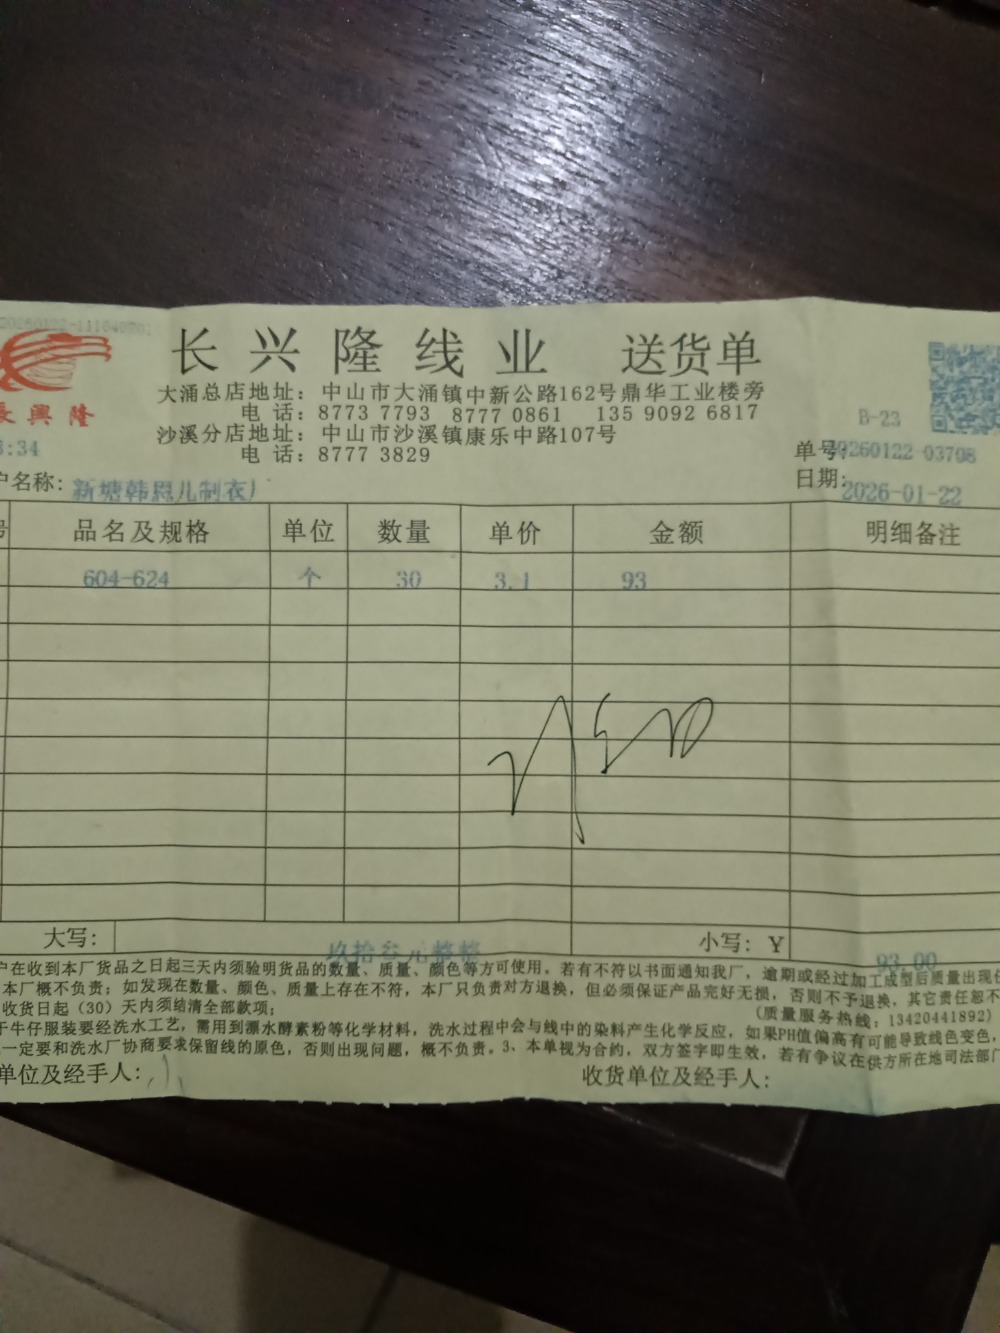 长兴隆线业 送货单
大涌总店地址：中山市大涌镇中新公路162号鼎华工业楼旁
电 话：8773 7793 8777 0861 135 9092 6817
沙溪分店地址：中山市沙溪镇康乐中路107号
电 话：8777 3829
長興隆
B-23
:34
单号：20260122-03708
日期：2026-01-22
户名称：新塘韩恩儿制衣厂
号 品名及规格 单位 数量 单价 金额 明细备注
604-624 个 30 3.1 93
大写： 玖拾叁元整整 小写：￥ 93.00
户在收到本厂货品之日起三天内须验明货品的数量、质量、颜色等方可使用。若有不符以书面通知我厂，逾期或经过加工成型后质量出现任
本厂概不负责；如发现在数量、颜色、质量上存在不符，本厂只负责对方退换，但必须保证产品完好无损，否则不予退换，其它责任恕不
收货日起（30）天内须结清全部款项；
（质量服务热线：13420441892）
于牛仔服装要经洗水工艺，需用到漂水酵素粉等化学材料，洗水过程中会与线中的染料产生化学反应，如果PH值偏高有可能导致线色变色，
一定要和洗水厂协商要求保留线的原色，否则出现问题，概不负责。3、本单视为合约，双方签字即生效，若有争议在供方所在地司法部门
单位及经手人： 收货单位及经手人：